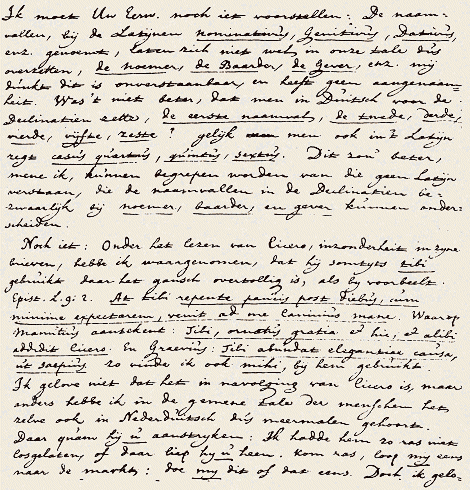 Ik moet Uw Eerw. noch iet voorstellen: De naam-
vallen, bij de Latijnen nominativus, Genitivus, Dativus,
enz. genoemt, laten zich niet wel in onze tale dus
overzetten, de noemer, de Baarder, de Gever, enz. mij
dunkt dit is onverstaanbaar, en heeft geen aangenaam-
heit. Was't niet beter, dat men in Duitsch voor de
Declinatien zette, de eerste naamval, de tweede, derde,
vierde, vijfte, zeste? gelijk men ook in't Latijn
zegt casus quartus, quintus, sextus. Dit zou beter,
mene ik, kunnen begrepen worden van die geen Latijn
verstaan, die de naamvallen in de Declinatien be-
zwaarlijk bij noemer, baarder, en gever kunnen onder-
scheiden.
Noch iet: Onder het lezen van Cicero, inzonderheit in zyne
brieven, hebbe ik waargenomen, dat hij somtyts tibi
gebruikt daar het gansch overtollig is, als by voorbeelt.
Epist. L. 9: 2. At tibi repente paucis post diebus, cum
minime expectarem, venit ad me Caninius mane. Waarop
Manutius aantekent: Tibi, ornatus gratia et hic, et alibi
addidit Cicero. En Graevius: Tibi abundat elegantiae causa,
ut saepius zo vinde ik ook mihi, bij hem gebruikt.
Ik gelove niet dat het in navolging van Cicero is, maar
anders hebbe ik in de gemene tale der menschen het
zelve ook in Nederduitsch dus meermalen gehoort.
Daar quam hij u aanstryken: Ik hadde hem zo ras niet
losgelaten, of daar liep hij u heen. kom ras, loop my eens
naar de markt: doe my dit of dat eens. Doch ik gelo-